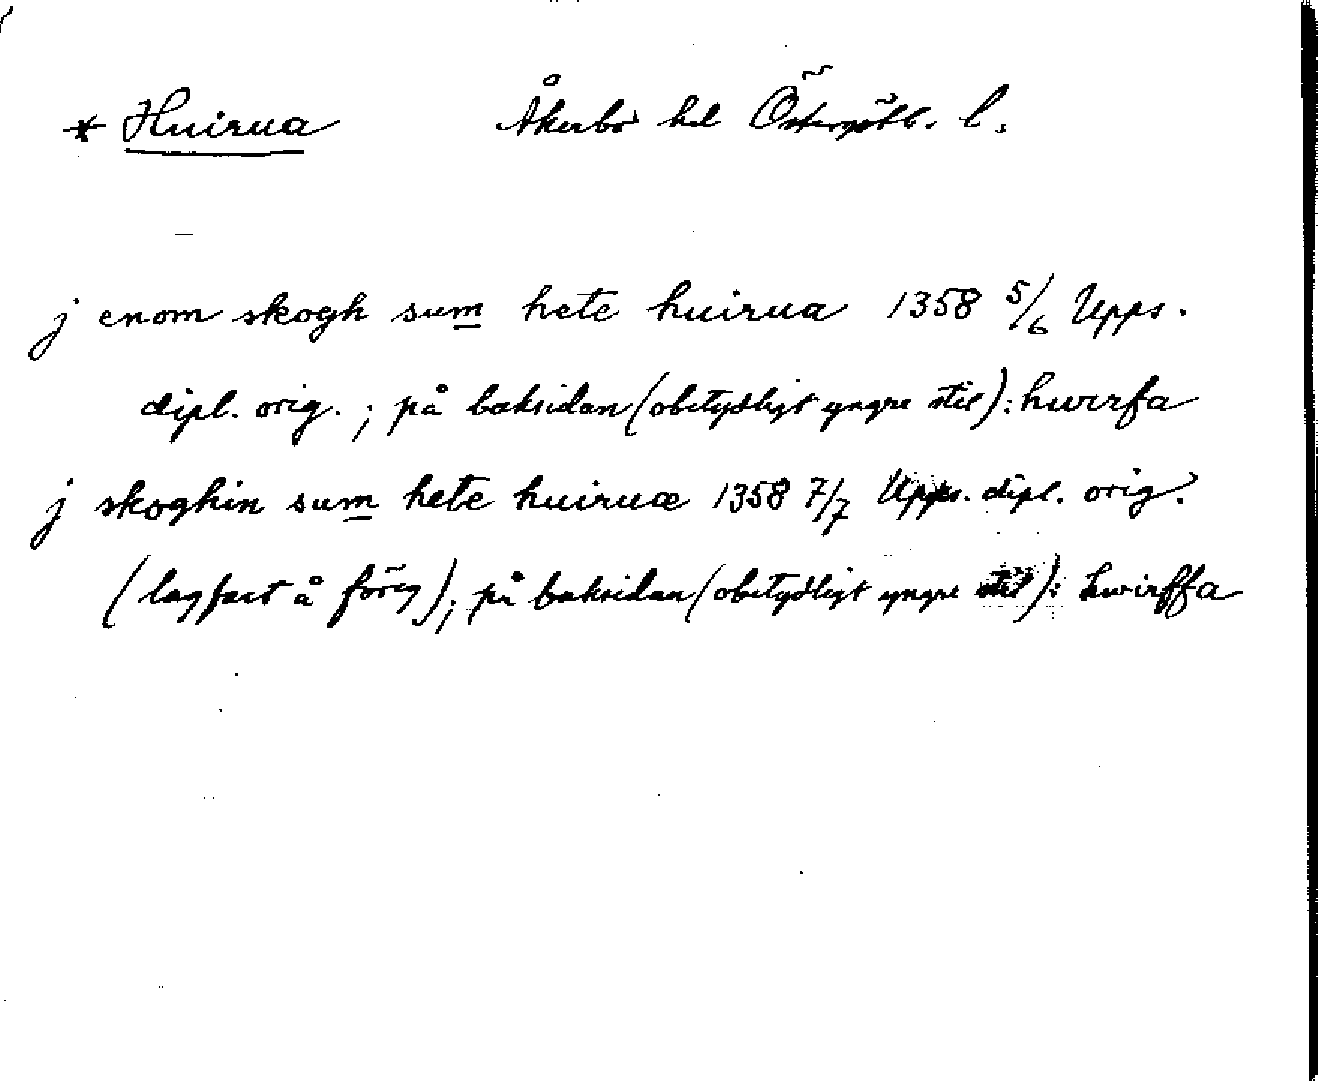 * Huirua Åkerbo hd Östergötl. l.
j enom skogh sum hete huirua 1358 5/6 Upps.
dipl. orig.; på baksidan (obetydligt yngre stil): hwirfa
j skoghin sum hete huiruæ 1358 7/7 Upps. dipl. orig.
(lagfart å föreg); på baksidan (obetydligt yngre stil): hwirffa